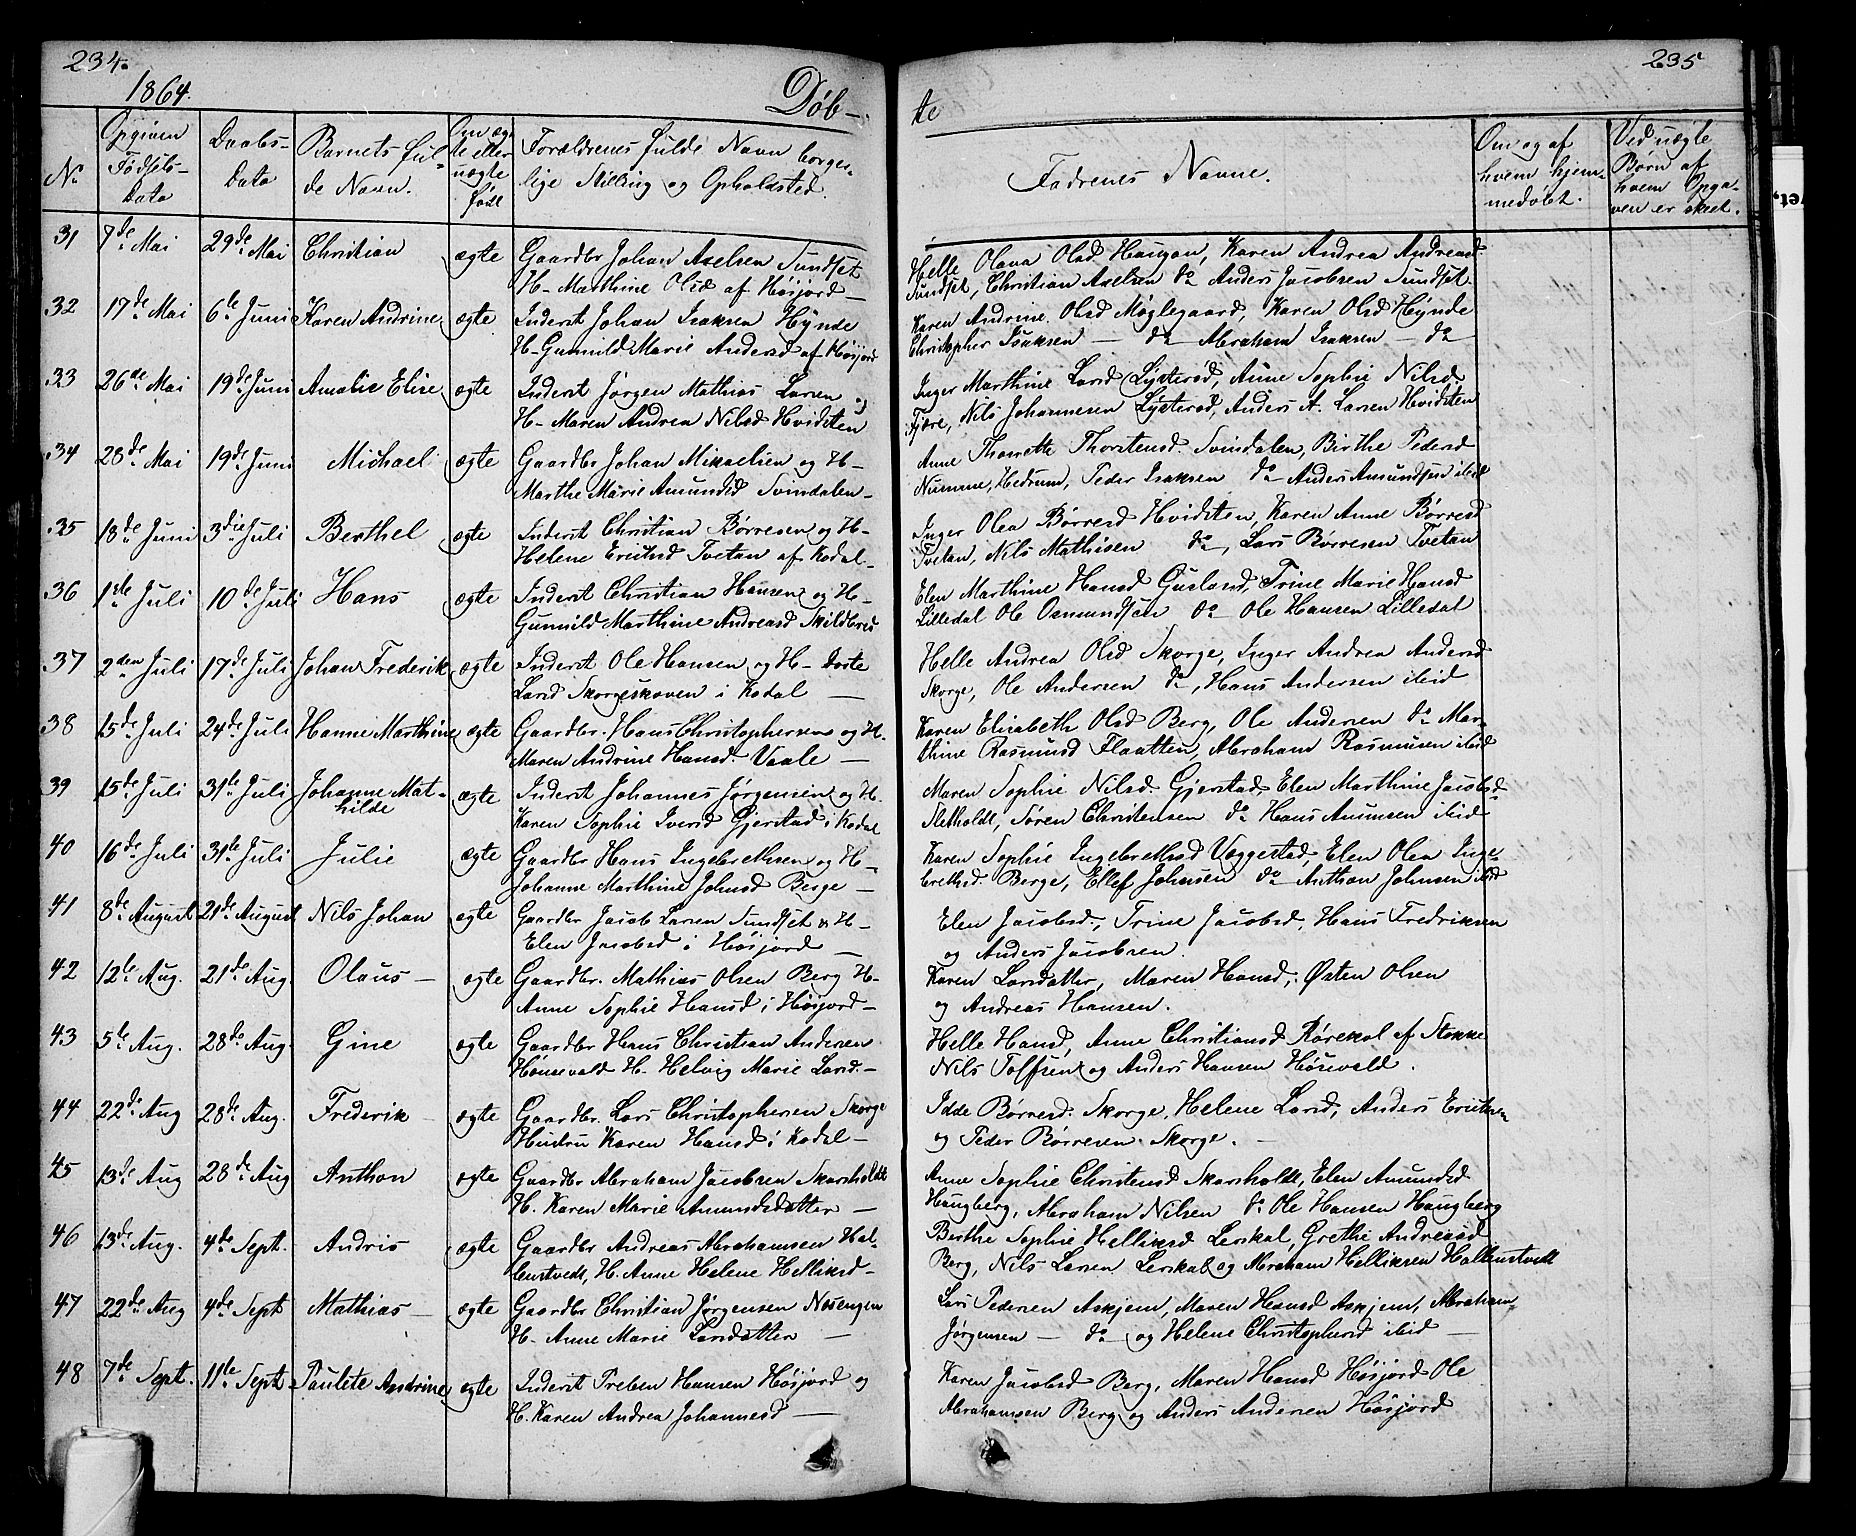 234.
1864.
Døb-
No
Opgiven Fødsels-Dato
Daabs-Dato
Barnets ful-de Navn.
Om æg-te eller uægte født
Forældrenes fulde Navn borger-lige Stilling og Opholdsted.
31 7de Mai 29de Mai Christian ægte Gaardbr Johan Axelsen Sundset
H- Marthine Olsd af Høijord -
32 17de Mai 6te Juni Karen Andrine ægte Inderst Johan Isaksen Hynde
H- Gunnild Marie Andersd af Høijord
33 26de Mai 19de Juni Amalie Elise ægte Inderst Jørgen Mathias Larsen og
H- Maren Andrea Nilsd Hvidsten
34 28de Mai 19de Juni Michael ægte Gaardbr Johan Mikaelsen og H-
Marthe Marie Amundsd Svindalen-
35 18de Juni 3die Juli Berthel ægte Inderst Christian Børresen og H-
Helene Eriksd Tvetan af Kodal-
36 1ste Juli 10de Juli Hans ægte Inderst Christian Hansen og H-
Gunnild Marthine Andreasd Skildbred
37 2den Juli 17de Juli Johan Frederik ægte Inderst Ole Hansen og H- Dorte
Larsd Skorgeskoven i Kodal -
38 15de Juli 24de Juli Hanne Marthine ægte Gaardbr. Hans Christophersen og H.
Maren Andrine Hansd. Vaale -
39 15de Juli 31te Juli Johanne Mat-hilde ægte Inderst Johannes Jørgensen og H.
Karen Sophie Iversd Gjerstad i Kodal
40 16de Juli 31te Juli Julie ægte Gaardbr Hans Ingebrethsen og H-
Johanne Marthine Johnsd Berge -
41 8de August 21de August Nils Johan ægte Gaardbr Jacob Larsen Sundset & H-
Elen Jacobsd i Høijord -
42 12te Aug. 21de Aug. Olaus - ægte Gaardbr. Mathias Olsen Berg H-
Anne Sophie Hansd i Høijord -
43 5te Aug. 28de Aug. Gine ægte Gaardbr Hans Christian Andersen
Hønsevald H. Helvig Marie Larsd.-
44 22de Aug 28de Aug. Frederik ægte Gaardbr. Lars Christophersen Skorge
Hustru Karen Hansd i Kodal -
45 13de Aug 28de Aug Anthon ægte Gaardbr Abraham Jacobsen Skarsholdt
H. Karen Marie Amundsdatter -
46 13de Aug. 4de Sept. Andris ægte Gaardbr Andreas Abrahamsen Hal-
lenstvedt, H. Anne Helene Helliksd -
47 22de Aug 4de Sept Mathias - ægte Gaardbr Christian Jørgensen Nøsengen
H- Anne Marie Larsdatter -
48 7de Sept. 11te Sept Paulete Andrine ægte Inderst Preben Hansen Høijord og
H. Karen Andrea Johannesd -
235
te
Fadrenes Navne.
Om og af hvem hjem-medøbt.
Ved uægte Børn af hvem Opga-ven er skeet.
Helle Olava Olsd Haugan, Karen Andrea Andreasd
Sundset, Christian Axelsen do Anders Jacobsen Sundset.
Karen Andrine Olsd Møglegaard, Karen Olsd Hynde
Christopher Isaksen - do Abraham Isaksen - do
Inger Marthine Larsd Lysterød, Anne Sophie Nilsd
Fjære, Nils Johannesen Lysterød, Anders A. Larsen Hvidsten
Anne Thorette Thorstensd. Svindalen, Birthe Pedersd
Numme, Hedrum, Peder Isaksen do Anders Amundsen ibid
Inger Olea Børresd Hvidsten, Karen Anne Børresd
Tvetan, Nils Mathisen do, Lars Børresen Tvetan
Elen Marthine Hansd Gusland, Trine Marie Hansd
Lilledal Ole Osmundsen do Ole Hansen Lilledal
Helle Andrea Olsd Skorge, Inger Andrea Andersd
Skorge, Ole Andersen do, Hans Andersen ibid
Karen Elisabeth Olsd Berg, Ole Andersen do Mar-
thine Rasmusd Flaatten, Abraham Rasmusen ibid
Maren Sophie Nilsd Gjerstad, Elen Marthine Jacobsd
Sletholdt, Søren Christensen do Hans Anumsen ibid
Karen Sophie Ingebrethsd Væggestad, Elen Olea Inge-
brethsd. Berge, Ellef Johnsen do Anthon Johnsen ibid
Elen Jacobsd, Trine Jacobsd, Hans Fredriksen
og Anders Jacobsen.
Karen Larsdatter, Maren Hansd, Østen Olsen
og Andreas Hansen.
Helle Hansd, Anne Christiansd Rørekol af Stokke
Nils Tolfsen og Anders Hansen Høsevald.
Idde Børresd. Skorge, Helene Larsd, Anders Eriksen
og Peder Børresen Skorge. -
Anne Sophie Christensd Skarsholdt, Elen Amundsd
Haugberg, Abraham Nilsen do Ole Hansen Haugberg
Birthe Sophie Helliksd Lerskal, Grethe Andreasd
Berg, Nils Larsen Lerskal og Abraham Helliksen Hallenstvedt
Lars Pedersen Askjem, Maren Hansd Askjem, Abraham
Jørgensen - do og Helene Christophersd ibid -
Karen Jacobsd Berg, Maren Hansd Høijord Ole
Abrahamsen Berg og Anders Andersen Høijord